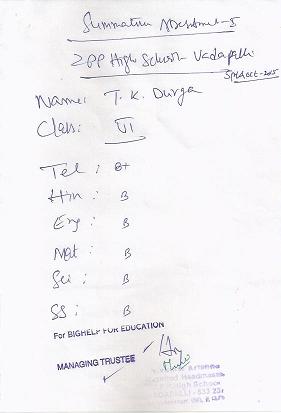 Summative Assessment-I
ZPP High School Vadapalli
Sep/Oct-2015
Name: T. K. Durga
Class: VI
Tel : B+
Hin : B
Eng : B
Mat : B
Sci : B
SS : B
For BIGHELP FOR EDUCATION
MANAGING TRUSTEE
Headmaster
High School